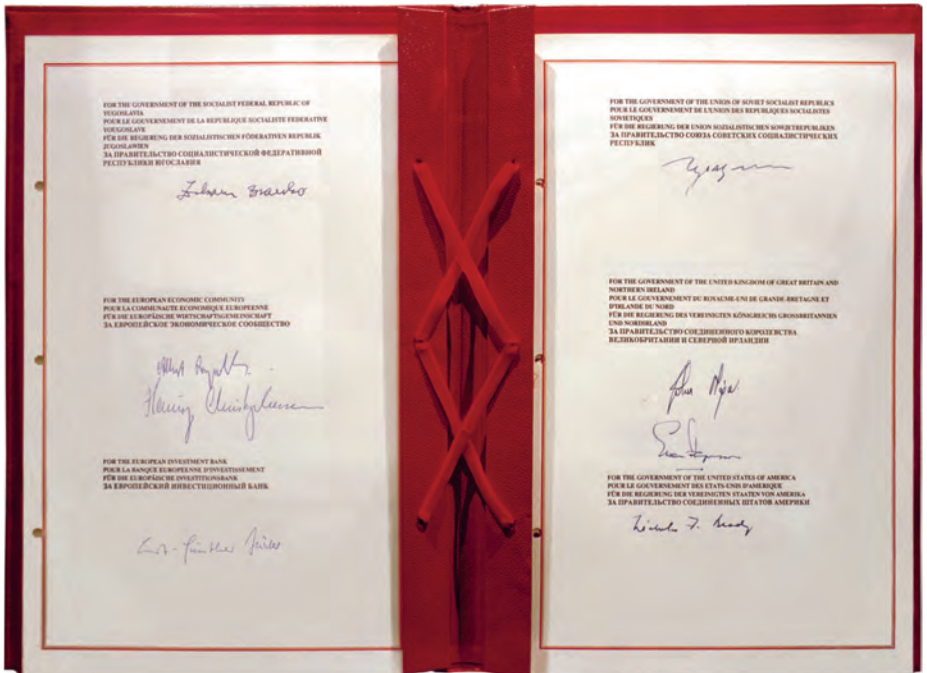 FOR THE GOVERNMENT OF THE SOCIALIST FEDERAL REPUBLIC OF
YUGOSLAVIA
POUR LE GOUVERNEMENT DE LA REPUBLIQUE SOCIALISTE FEDERATIVE
YOUGOSLAVE
FÜR DIE REGIERUNG DER SOZIALISTISCHEN FÖDERATIVEN REPUBLIK
JUGOSLAWIEN
ЗА ПРАВИТЕЛЬСТВО СОЦИАЛИСТИЧЕСКОЙ ФЕДЕРАТИВНОЙ
РЕСПУБЛИКИ ЮГОСЛАВИЯ
FOR THE EUROPEAN ECONOMIC COMMUNITY
POUR LA COMMUNAUTE ECONOMIQUE EUROPEENNE
FÜR DIE EUROPÄISCHE WIRTSCHAFTSGEMEINSCHAFT
ЗА ЕВРОПЕЙСКОЕ ЭКОНОМИЧЕСКОЕ СООБЩЕСТВО
Henning Christophersen
FOR THE EUROPEAN INVESTMENT BANK
POUR LA BANQUE EUROPEENNE D'INVESTISSEMENT
FÜR DIE EUROPÄISCHE INVESTITIONSBANK
ЗА ЕВРОПЕЙСКИЙ ИНВЕСТИЦИОННЫЙ БАНК
Ernst-Günther
FOR THE GOVERNMENT OF THE UNION OF SOVIET SOCIALIST REPUBLICS
POUR LE GOUVERNEMENT DE L'UNION DES REPUBLIQUES SOCIALISTES
SOVIETIQUES
FÜR DIE REGIERUNG DER UNION SOZIALISTISCHEN SOWJETREPUBLIKEN
ЗА ПРАВИТЕЛЬСТВО СОЮЗА СОВЕТСКИХ СОЦИАЛИСТИЧЕСКИХ
РЕСПУБЛИК
FOR THE GOVERNMENT OF THE UNITED KINGDOM OF GREAT BRITAIN AND
NORTHERN IRELAND
POUR LE GOUVERNEMENT DU ROYAUME-UNI DE GRANDE-BRETAGNE ET
D'IRLANDE DU NORD
FÜR DIE REGIERUNG DES VEREINIGTEN KÖNIGREICHS GROSSBRITANNIEN
UND NORDIRLAND
ЗА ПРАВИТЕЛЬСТВО СОЕДИНЕННОГО КОРОЛЕВСТВА
ВЕЛИКОБРИТАНИИ И СЕВЕРНОЙ ИРЛАНДИИ
John Major
FOR THE GOVERNMENT OF THE UNITED STATES OF AMERICA
POUR LE GOUVERNEMENT DES ETATS-UNIS D'AMERIQUE
FÜR DIE REGIERUNG DER VEREINIGTEN STAATEN VON AMERIKA
ЗА ПРАВИТЕЛЬСТВО СОЕДИНЕННЫХ ШТАТОВ АМЕРИКИ
Nicholas F. Brady